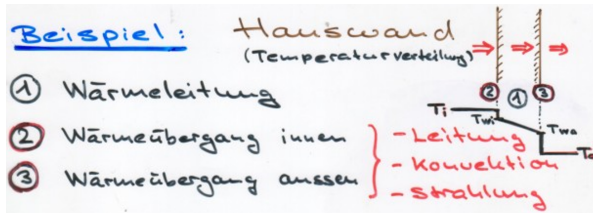 Beispiel: Hauswand
(Temperaturverteilung)
① Wärmeleitung
② Wärmeübergang innen
③ Wärmeübergang aussen
- Leitung
- Konvektion
- Strahlung
② ① ③
Ti
Twi
Twa